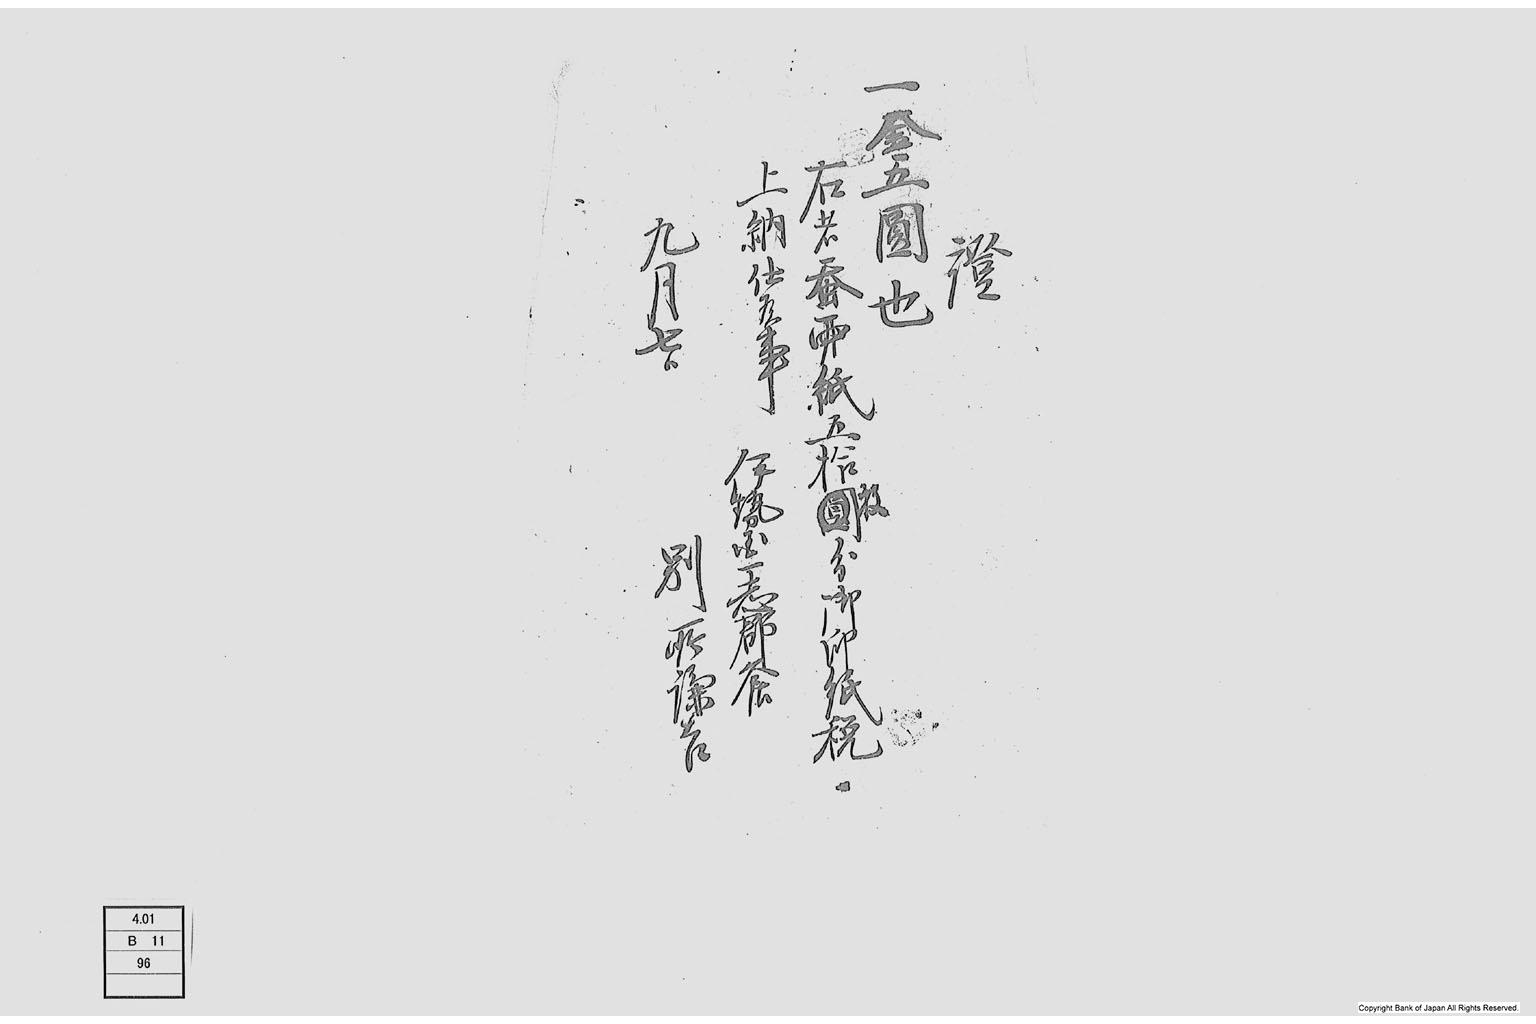 證
一金五圓也
右者蚕卵紙五拾圓枚分御印紙税
上納仕候事
伊勢国一志郡
九月七日
別所
4.01
B 11
96
Copyright Bank of Japan All Rights Reserved.